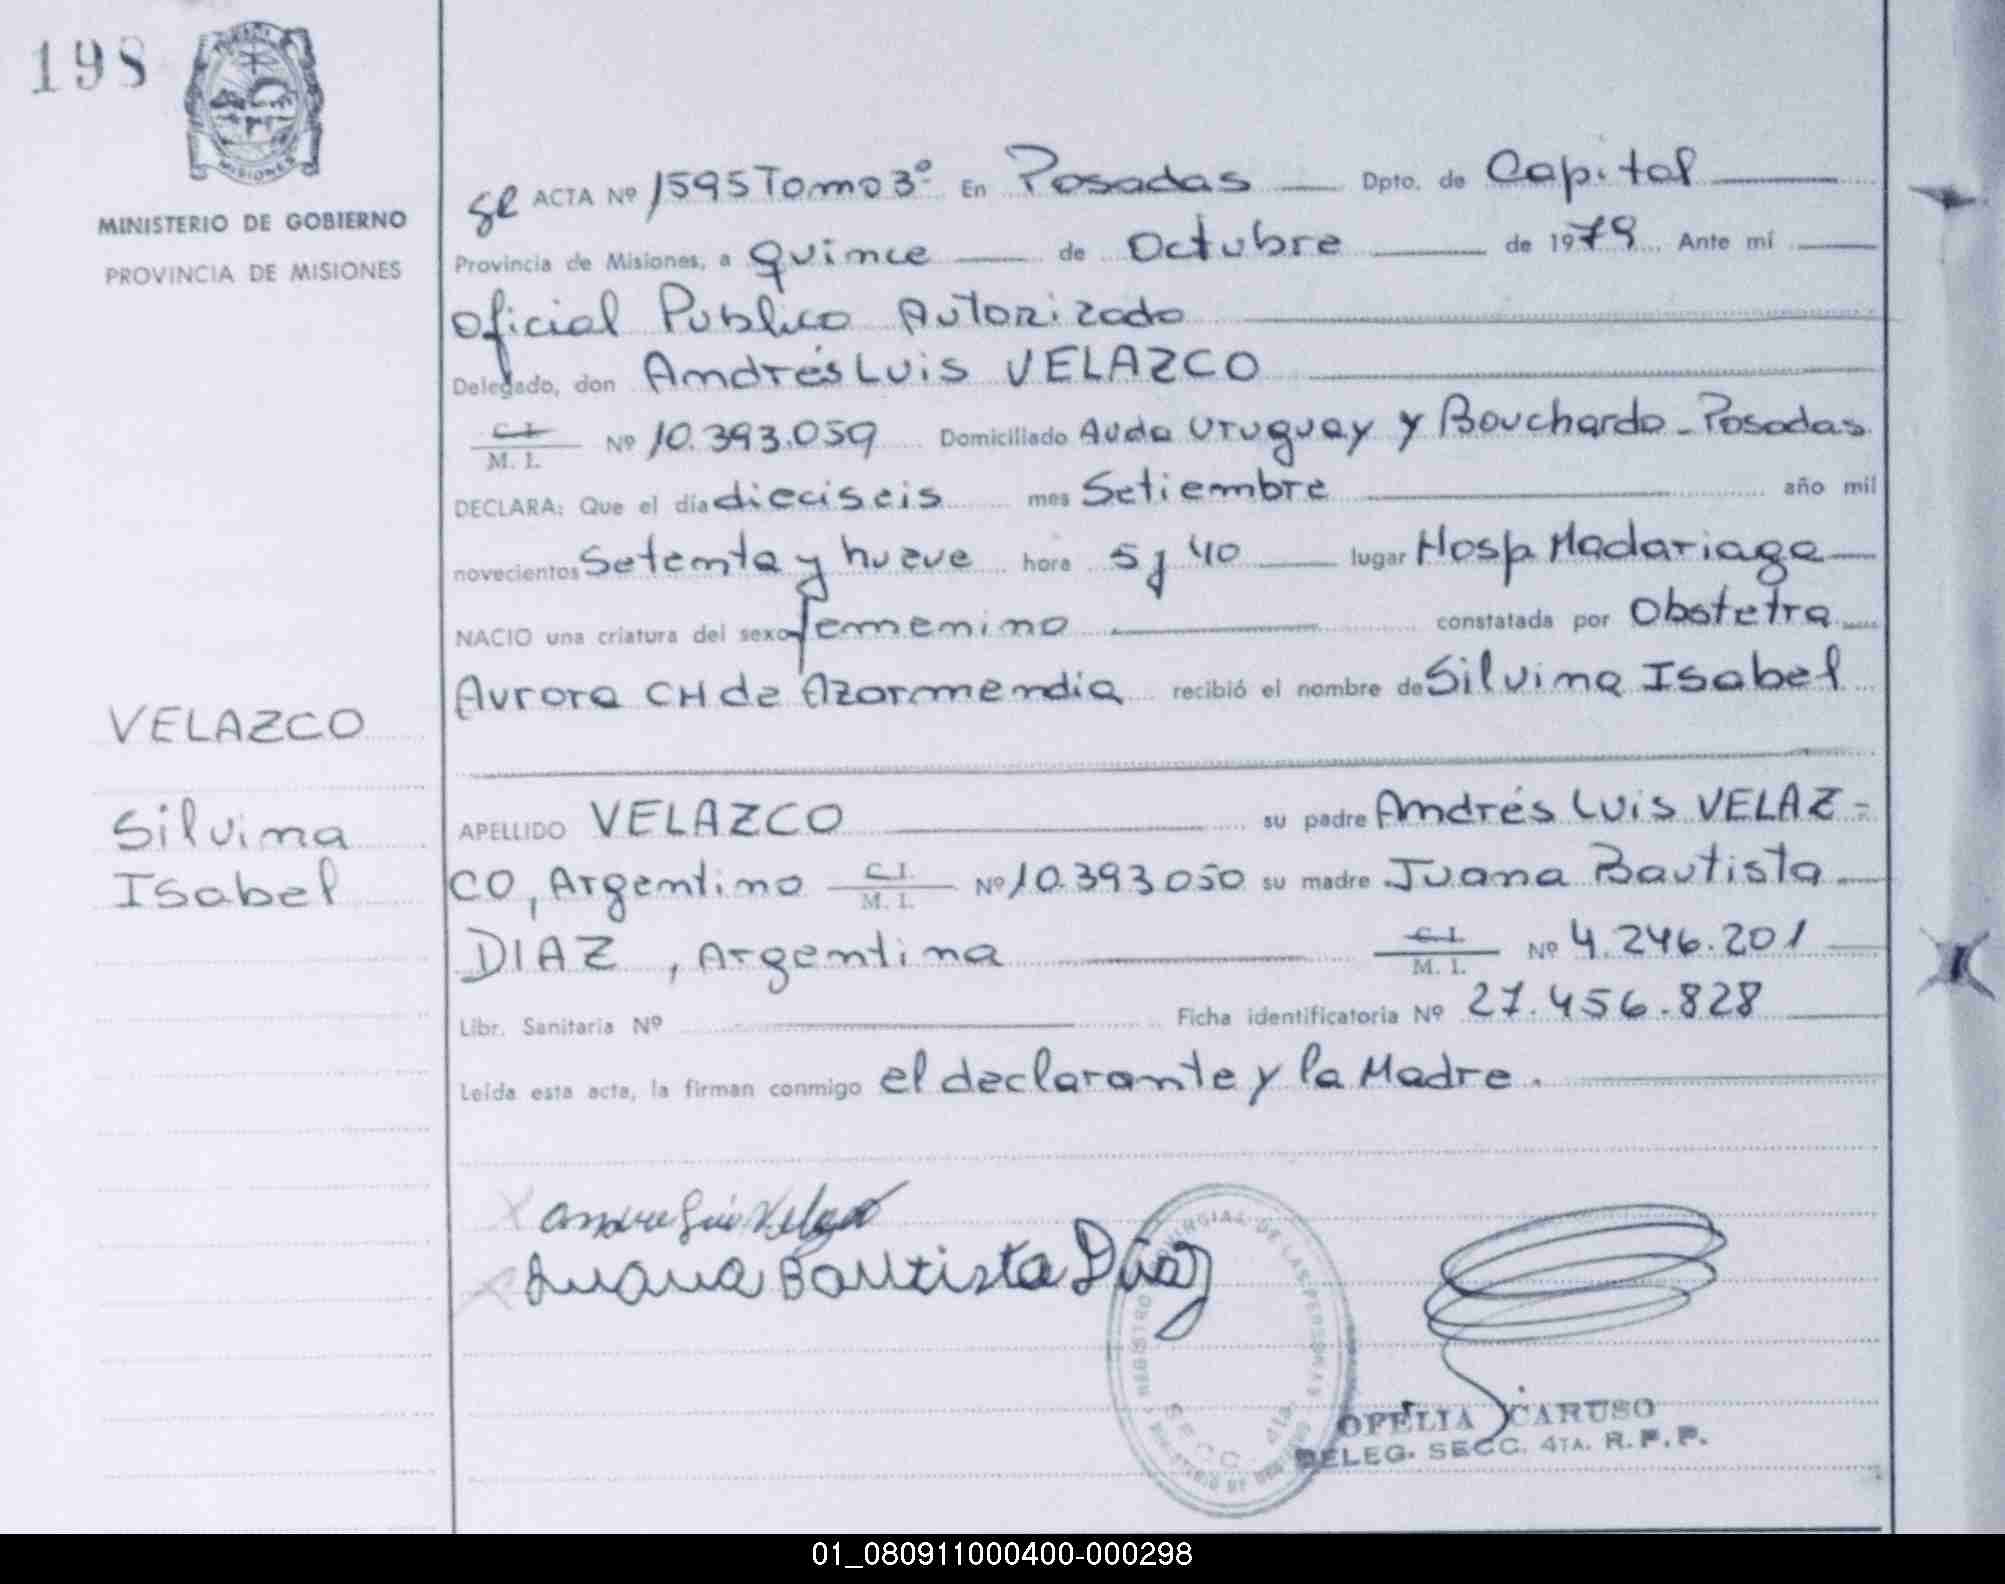 198
MISIONES
MINISTERIO DE GOBIERNO
PROVINCIA DE MISIONES
ACTA Nº 1595 Tomo 3º En Posadas Dpto. de Capital
Provincia de Misiones, a quince de Octubre de 1979 Ante mí
Oficial Publico Autorizado
Delegado, don Andrés Luis VELAZCO
C. I.
M. I. Nº 10.393.059 Domiciliado Avda Uruguay y Bouchardo - Posadas
DECLARA: Que el día dieciseis mes Setiembre año mil
novecientos Setenta y nueve hora 5 y 40 lugar Hosp Madariaga
NACIO una criatura del sexo femenino constatada por Obstetra
Aurora CH de Azarmendia recibió el nombre de Silvina Isabel
VELAZCO
Silvina
Isabel
APELLIDO VELAZCO su padre Andrés Luis VELAZ=
CO, Argentino C. I.
M. I. Nº 10.393050 su madre Juana Bautista
DIAZ, Argentina C. I.
M. I. Nº 4.246.201
Libr. Sanitaria Nº Ficha identificatoria Nº 27.456.828
Leída esta acta, la firman conmigo el declarante y la Madre.
Juana Bautista Diaz
REGISTRO PROVINCIAL DE LAS PERSONAS
SECC. 4ta.
OFELIA CARUSO
DELEG. SECC. 4TA. R. P. P.
01_080911000400-000298